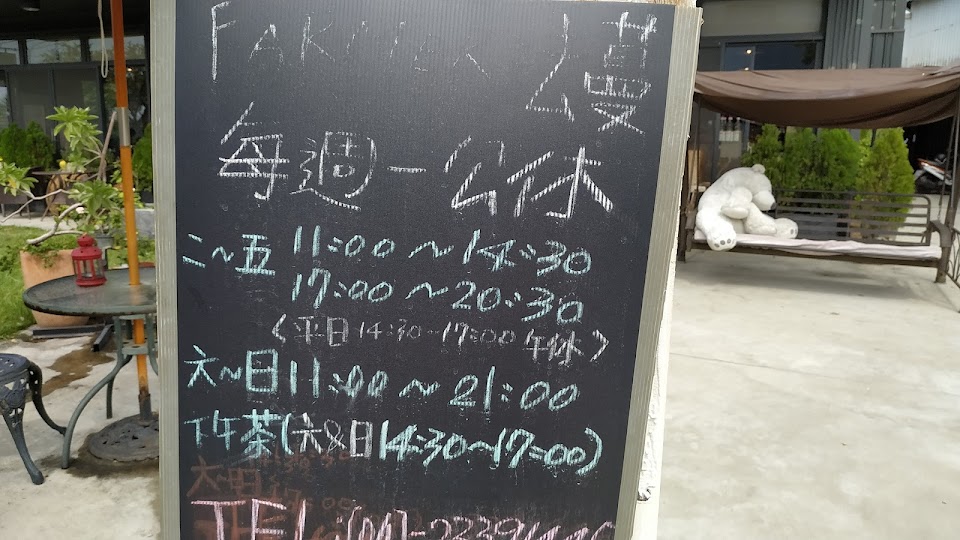 FARMER 蔓
每週一公休
二~五 11:00~14:30
17:00~20:30
(平日14:30~17:00午休)
六~日 11:00~21:00
下午茶(六&日14:30~17:00)
六日 17:00
TEL:(04)-2239